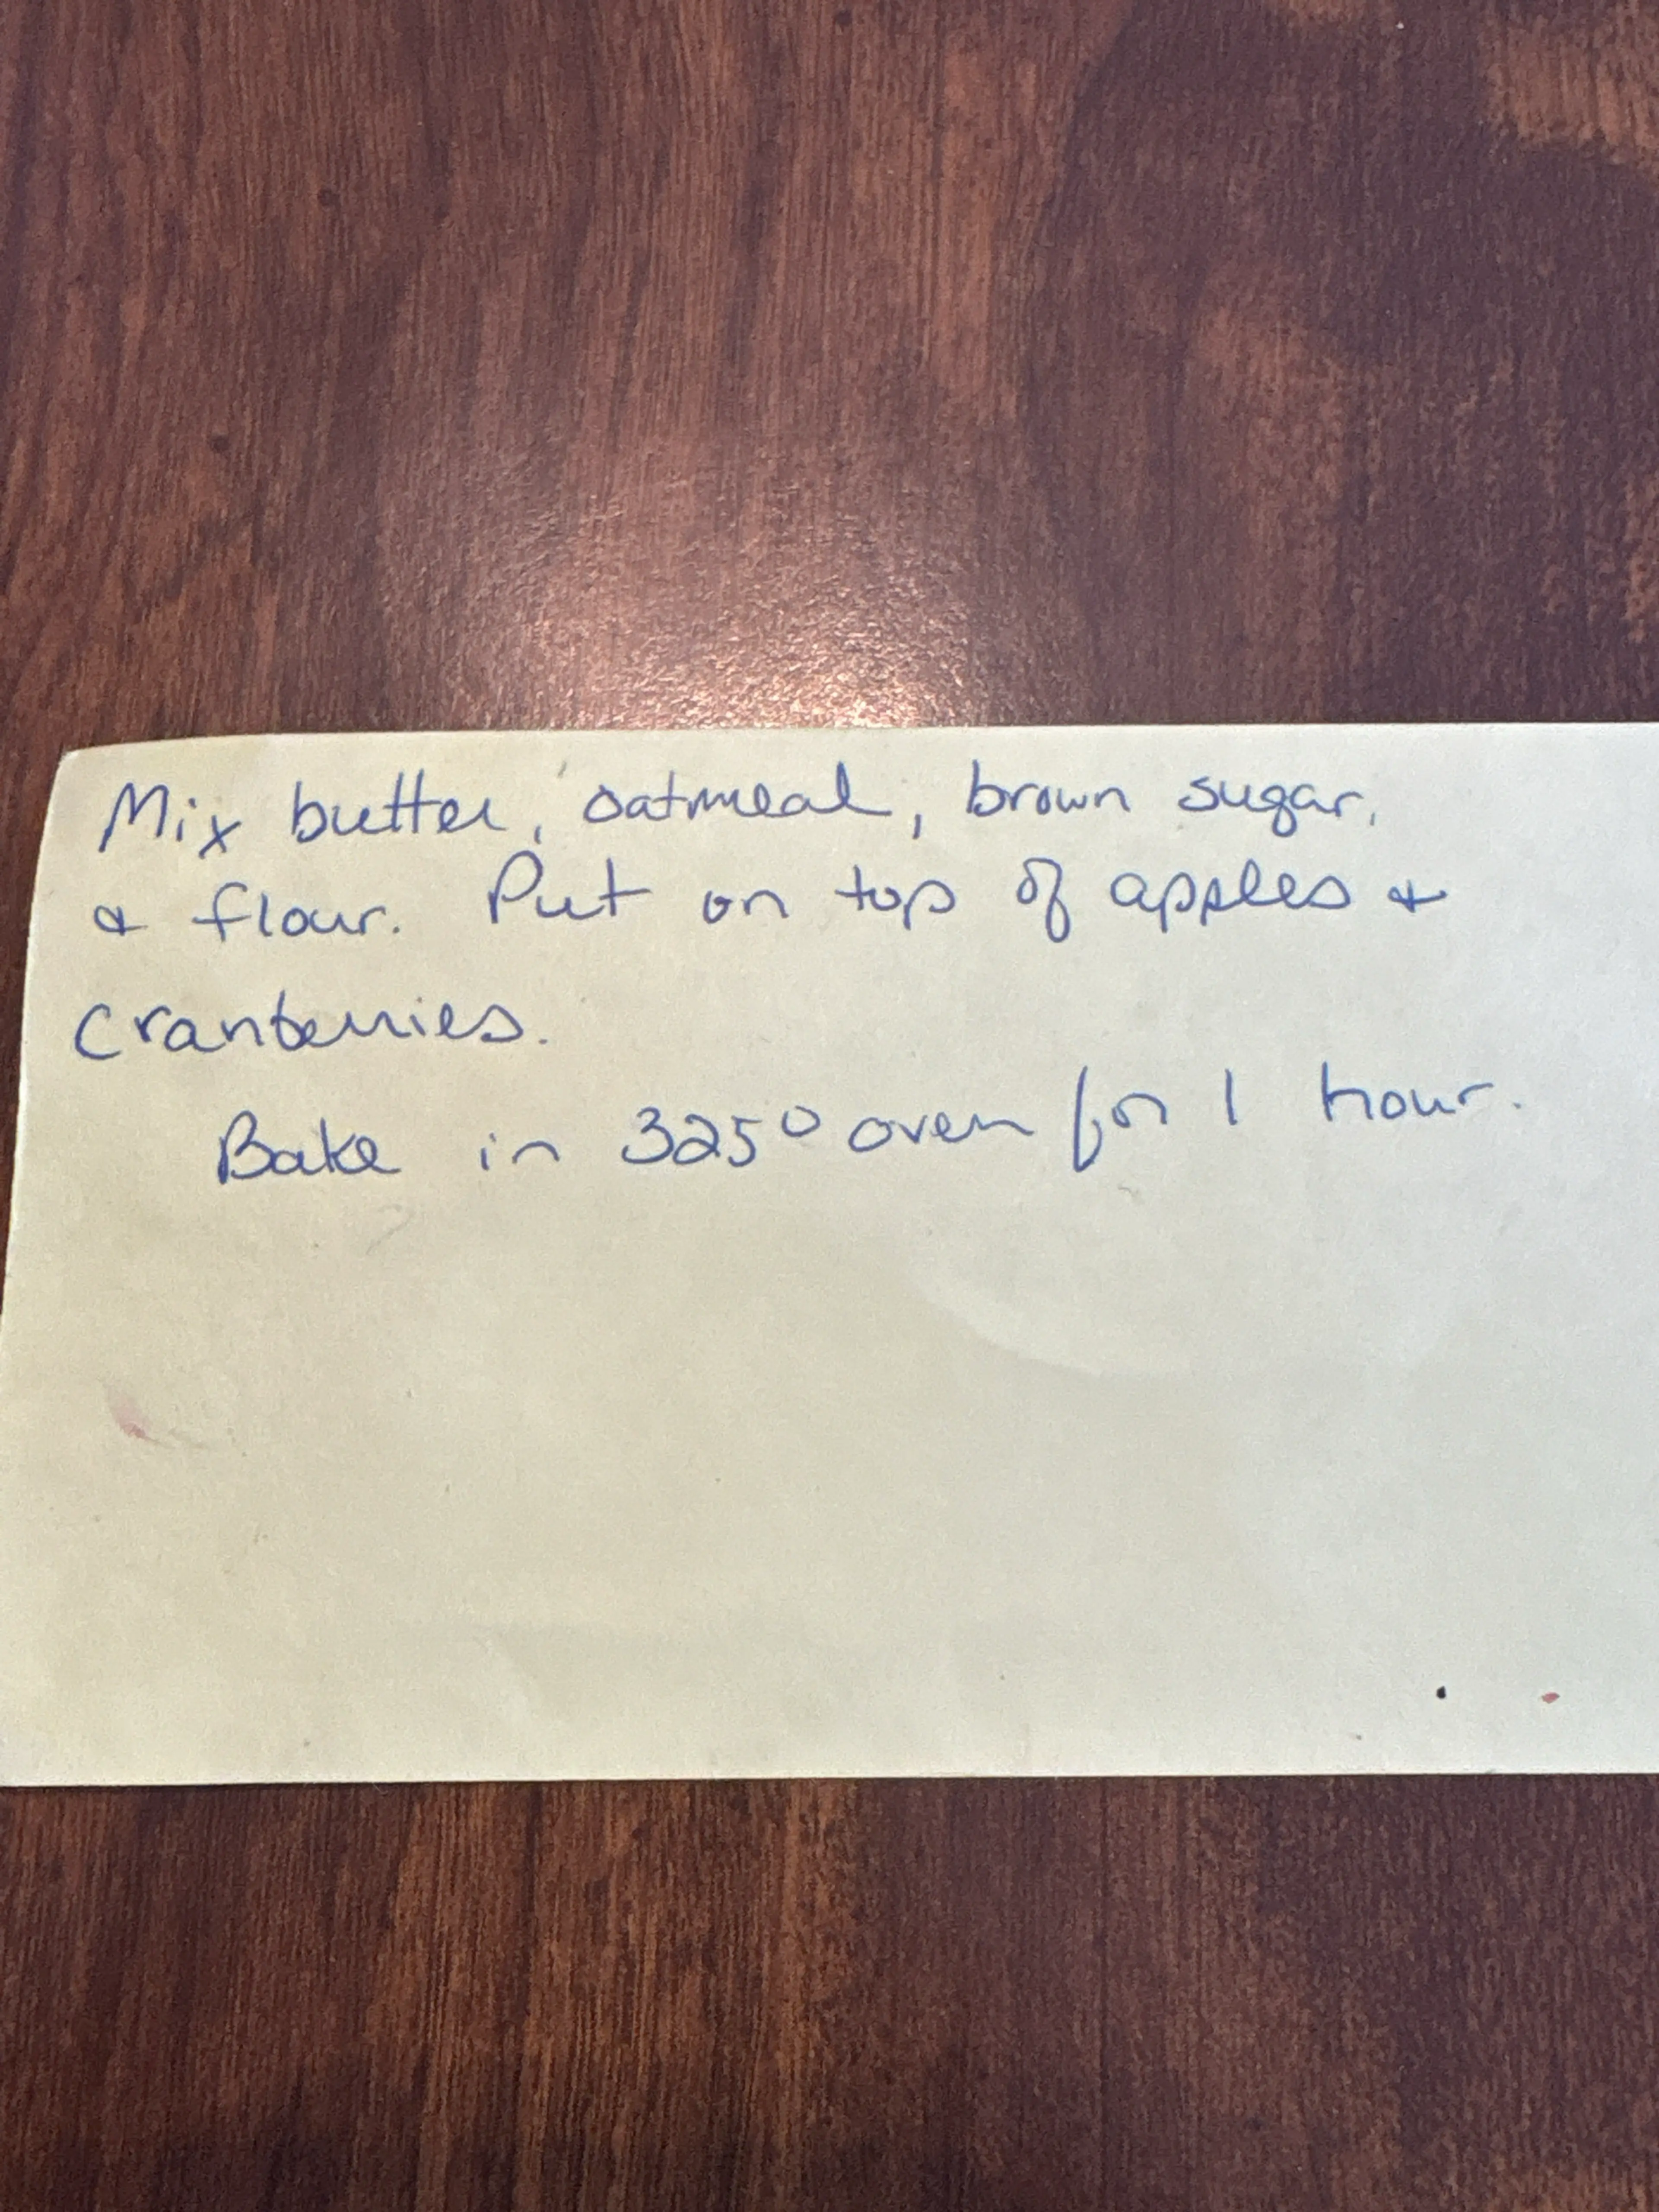 Mix butter, oatmeal, brown sugar,
& flour. Put on top of apples &
cranberries.
Bake in 325° oven for 1 hour.